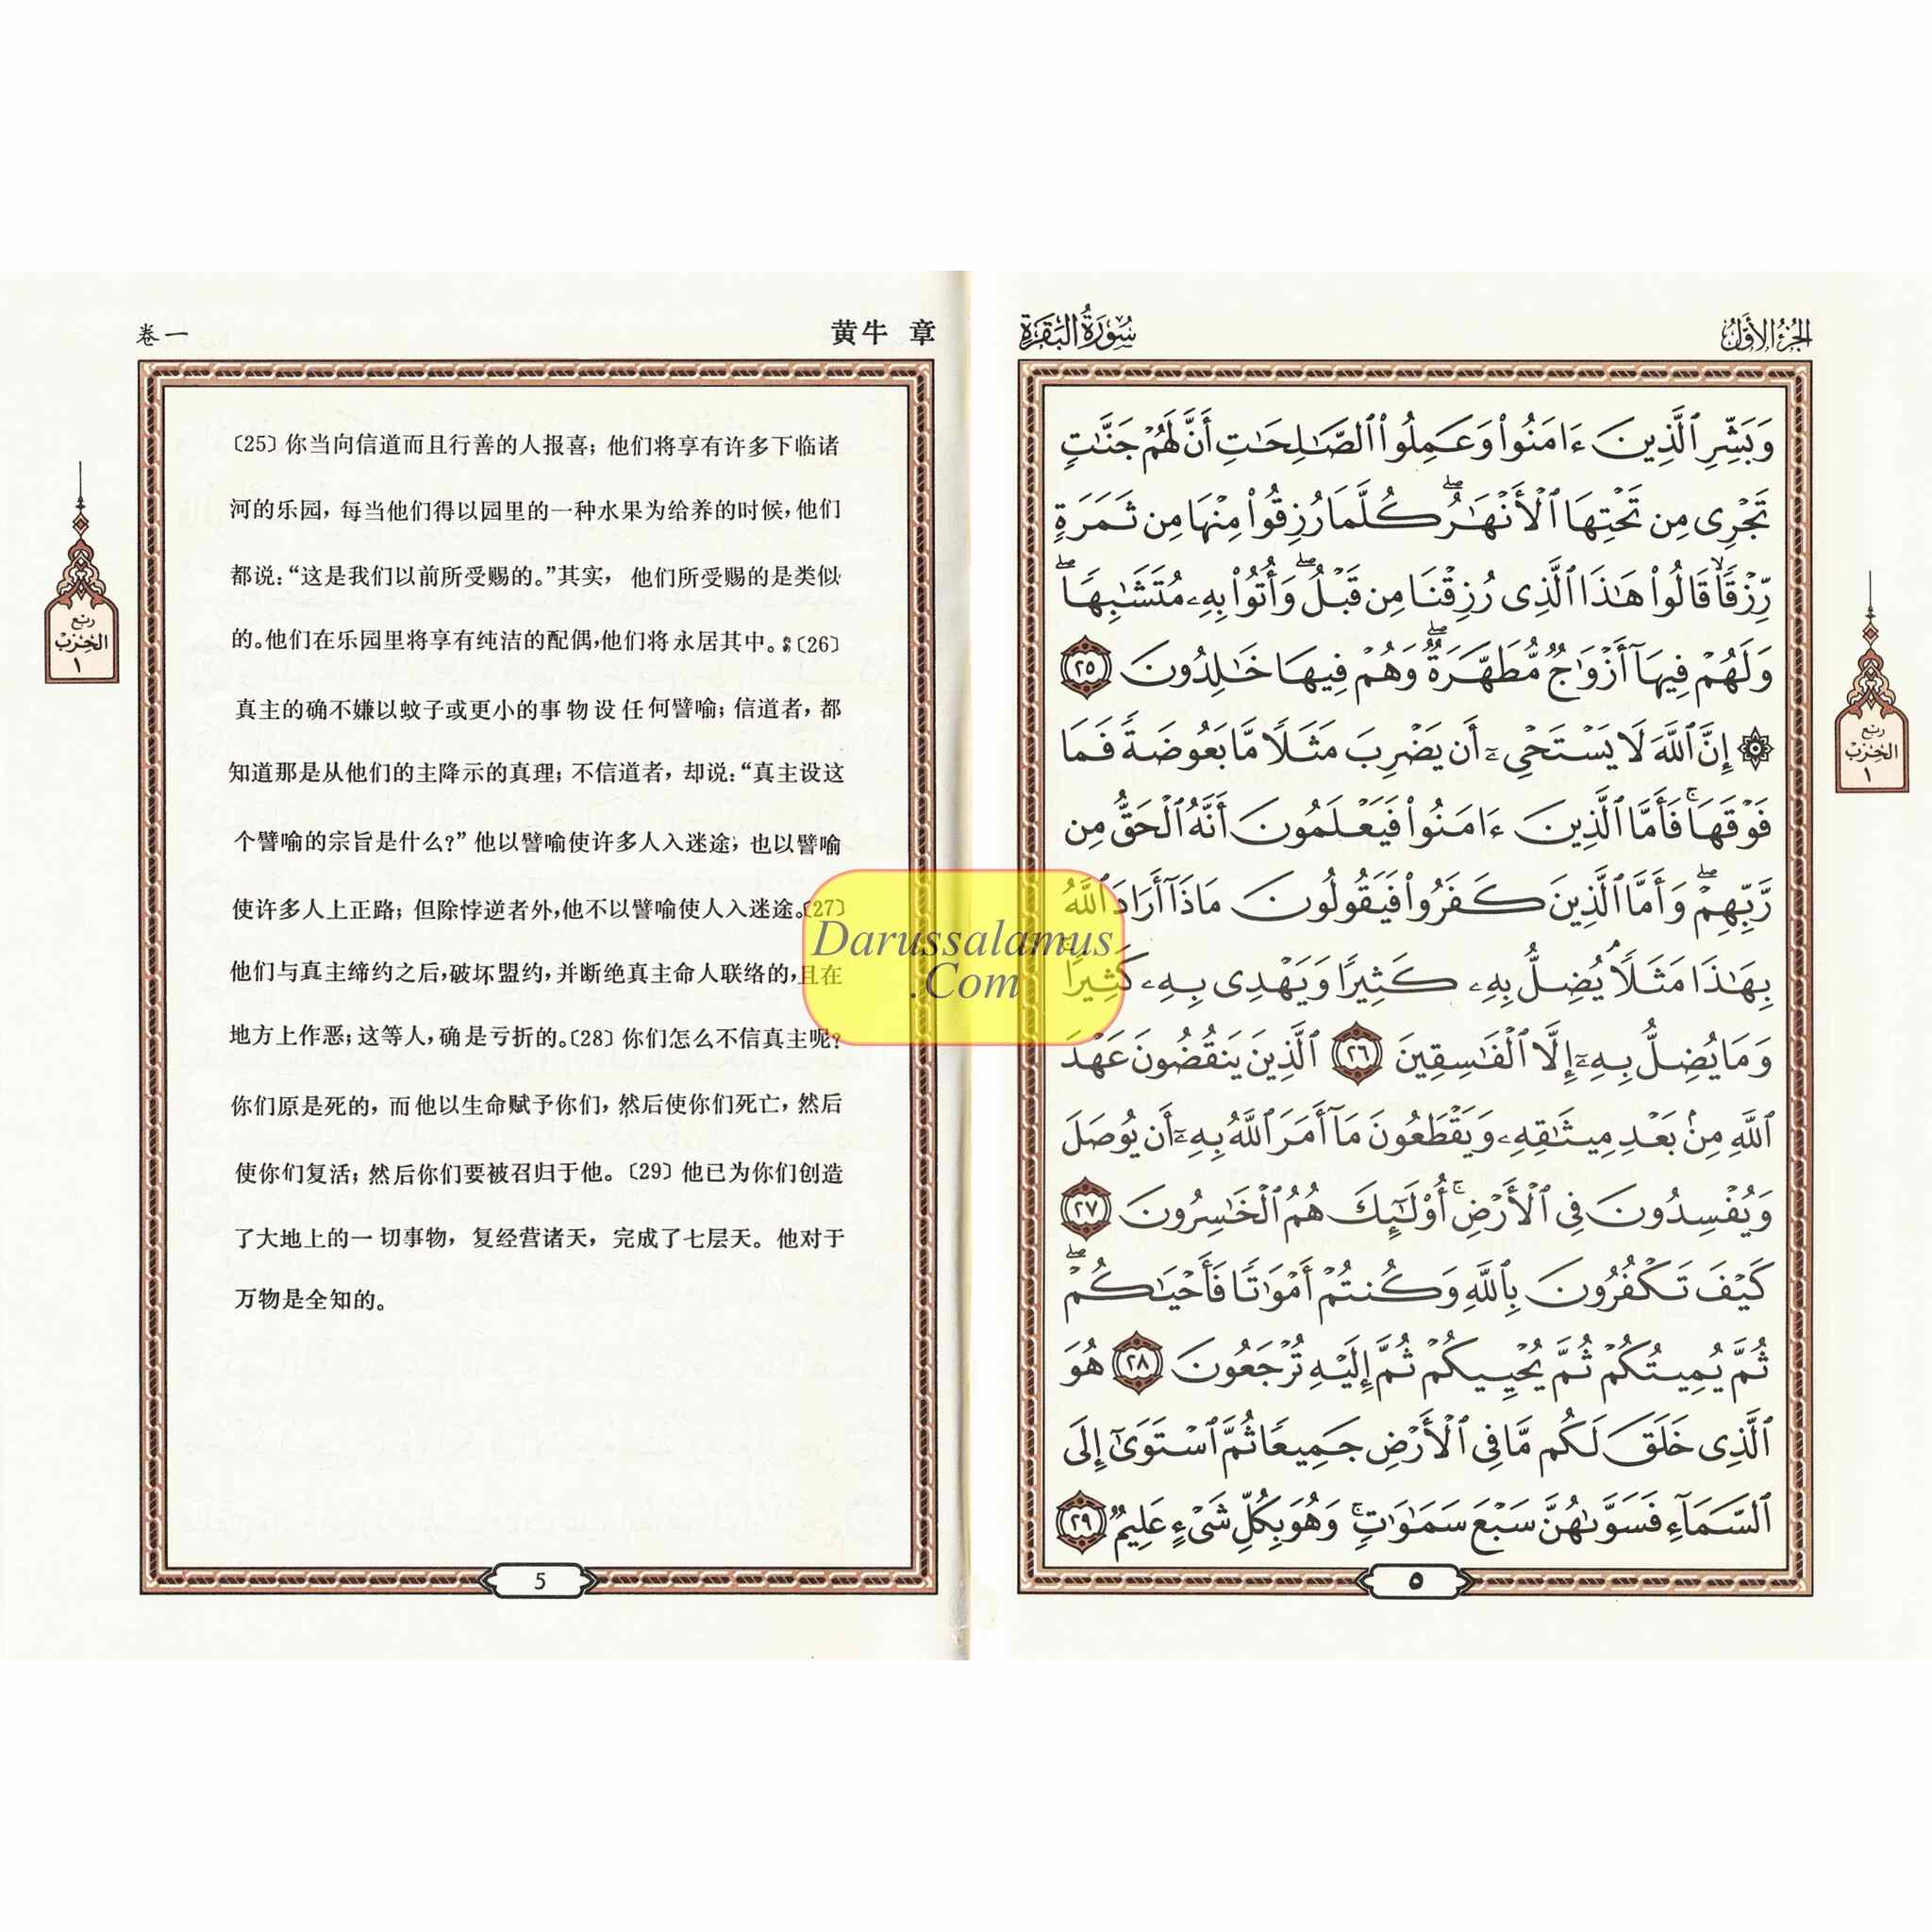 卷一
黄牛 章
〔25〕你当向信道而且行善的人报喜；他们将享有许多下临诸
河的乐园，每当他们得以园里的一种水果为给养的时候，他们
都说：“这是我们以前所受赐的。”其实，他们所受赐的是类似
的。他们在乐园里将享有纯洁的配偶，他们将永居其中。〔26〕
真主的确不嫌以蚊子或更小的事物设任何譬喻；信道者，都
知道那是从他们的主降示的真理；不信道者，却说：“真主设这
个譬喻的宗旨是什么？”他以譬喻使许多人入迷途，也以譬喻
使许多人上正路；但除悖逆者外，他不以譬喻使人入迷途。〔27〕
他们与真主缔约之后，破坏盟约，并断绝真主命人联络的，且在
地方上作恶；这等人，确是亏折的。〔28〕你们怎么不信真主呢？
你们原是死的，而他以生命赋予你们，然后使你们死亡，然后
使你们复活；然后你们要被召归于他。〔29〕他已为你们创造
了大地上的一切事物，复经营诸天，完成了七层天。他对于
万物是全知的。
5
ربع
الحزب
١
الجزء الأول
سورة البقرة
وَبَشِّرِ ٱلَّذِينَ ءَامَنُوا۟ وَعَمِلُوا۟ ٱلصَّـٰلِحَـٰتِ أَنَّ لَهُمْ جَنَّـٰتٍ
تَجْرِى مِن تَحْتِهَا ٱلْأَنْهَـٰرُ ۖ كُلَّمَا رُزِقُوا۟ مِنْهَا مِن ثَمَرَةٍ
رِّزْقًا ۙ قَالُوا۟ هَـٰذَا ٱلَّذِى رُزِقْنَا مِن قَبْلُ ۖ وَأُتُوا۟ بِهِۦ مُتَشَـٰبِهًا ۖ
وَلَهُمْ فِيهَآ أَزْوَٰجٌ مُّطَهَّرَةٌ ۖ وَهُمْ فِيهَا خَـٰلِدُونَ ٢٥
۞ إِنَّ ٱللَّهَ لَا يَسْتَحْىِۦٓ أَن يَضْرِبَ مَثَلًا مَّا بَعُوضَةً فَمَا
فَوْقَهَا ۚ فَأَمَّا ٱلَّذِينَ ءَامَنُوا۟ فَيَعْلَمُونَ أَنَّهُ ٱلْحَقُّ مِن
رَّبِّهِمْ ۖ وَأَمَّا ٱلَّذِينَ كَفَرُوا۟ فَيَقُولُونَ مَاذَآ أَرَادَ ٱللَّهُ
بِهَـٰذَا مَثَلًا ۘ يُضِلُّ بِهِۦ كَثِيرًا وَيَهْدِى بِهِۦ كَثِيرًا ۚ
وَمَا يُضِلُّ بِهِۦٓ إِلَّا ٱلْفَـٰسِقِينَ ٢٦ ٱلَّذِينَ يَنقُضُونَ عَهْدَ
ٱللَّهِ مِنۢ بَعْدِ مِيثَـٰقِهِۦ وَيَقْطَعُونَ مَآ أَمَرَ ٱللَّهُ بِهِۦٓ أَن يُوصَلَ
وَيُفْسِدُونَ فِى ٱلْأَرْضِ ۚ أُو۟لَـٰٓئِكَ هُمُ ٱلْخَـٰسِرُونَ ٢٧
كَيْفَ تَكْفُرُونَ بِٱللَّهِ وَكُنتُمْ أَمْوَٰتًا فَأَحْيَـٰكُمْ ۖ
ثُمَّ يُمِيتُكُمْ ثُمَّ يُحْيِيكُمْ ثُمَّ إِلَيْهِ تُرْجَعُونَ ٢٨ هُوَ
ٱلَّذِى خَلَقَ لَكُم مَّا فِى ٱلْأَرْضِ جَمِيعًا ثُمَّ ٱسْتَوَىٰٓ إِلَى
ٱلسَّمَآءِ فَسَوَّىٰهُنَّ سَبْعَ سَمَـٰوَٰتٍ ۚ وَهُوَ بِكُلِّ شَىْءٍ عَلِيمٌ ٢٩
٥
ربع
الحزب
١
Darussalamus
.Com